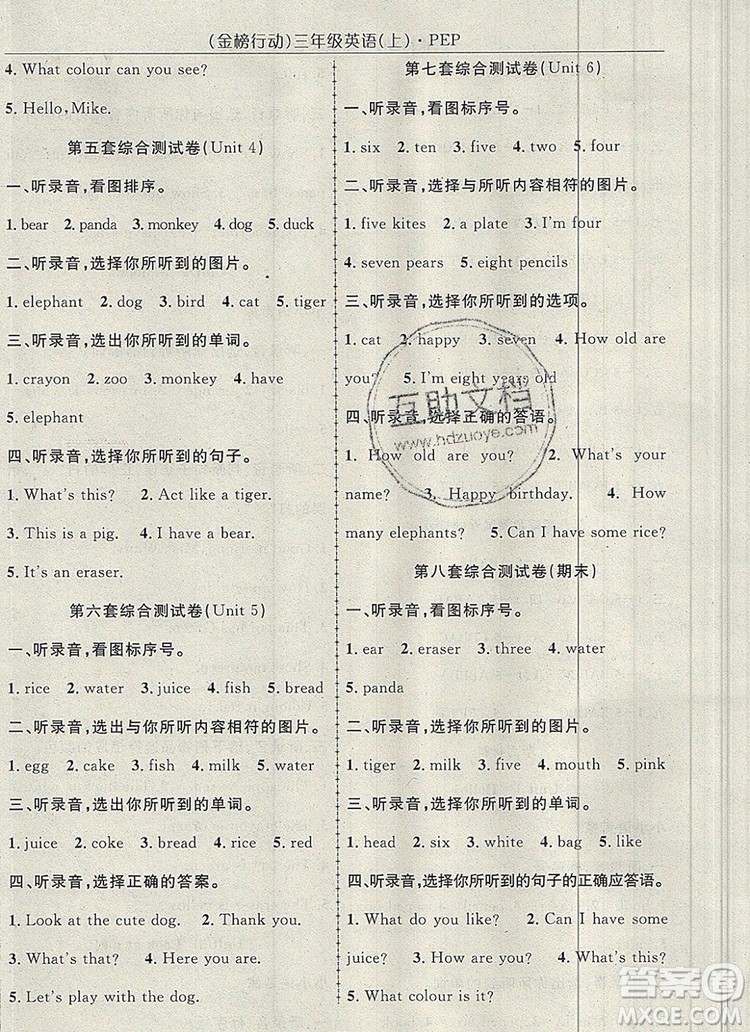 (金榜行动)三年级英语(上)·PEP
4. What colour can you see?
5. Hello, Mike.
第五套综合测试卷(Unit 4)
一、听录音,看图排序。
1. bear 2. panda 3. monkey 4. dog 5. duck
二、听录音,选择你所听到的图片。
1. elephant 2. dog 3. bird 4. cat 5. tiger
三、听录音,选出你所听到的单词。
1. crayon 2. zoo 3. monkey 4. have
5. elephant
四、听录音,选择你所听到的句子。
1. What's this? 2. Act like a tiger.
3. This is a pig. 4. I have a bear.
5. It's an eraser.
第六套综合测试卷(Unit 5)
一、听录音,看图标序号。
1. rice 2. water 3. juice 4. fish 5. bread
二、听录音,选出与你所听内容相符的图片。
1. egg 2. cake 3. fish 4. milk 5. water
三、听录音,选出你所听到的单词。
1. juice 2. coke 3. bread 4. rice 5. red
四、听录音,选择正确的答案。
1. Look at the cute dog. 2. Thank you.
3. What's this? 4. Here you are.
5. Let's play with the dog.
第七套综合测试卷(Unit 6)
一、听录音,看图标序号。
1. six 2. ten 3. five 4. two 5. four
二、听录音,选择与所听内容相符的图片。
1. five kites 2. a plate 3. I'm four
4. seven pears 5. eight pencils
三、听录音,选择你所听到的选项。
1. cat 2. happy 3. seven 4. How old are
you? 5. I'm eight years old
四、听录音,选择正确的答语。
1. How old are you? 2. What's your
name? 3. Happy birthday. 4. How
many elephants? 5. Can I have some rice?
第八套综合测试卷(期末)
一、听录音,看图标序号。
1. ear 2. eraser 3. three 4. water
5. panda
二、听录音,选择你所听到的图片。
1. tiger 2. bread 3. milk 4. mouth 5. pink
三、听录音,选择你所听到的单词。
1. head 2. six 3. white 4. bag 5. like
四、听录音,选择你所听到的句子的正确应答语。
1. What do you like? 2. Can I have some
juice? 3. How are you? 4. What's this?
5. What colour is it?
互助文档
www.hdzuoye.com
答案圈
MXQE.COM